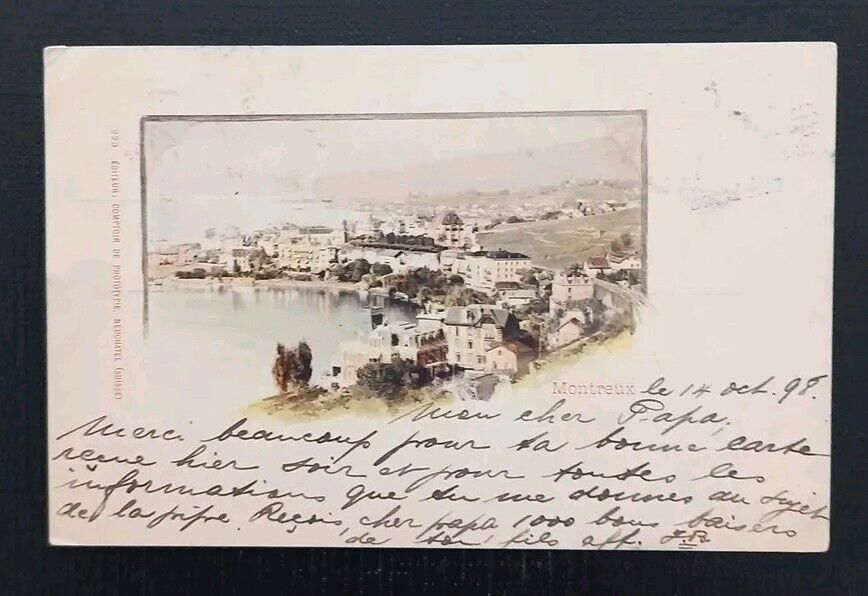 223 EDITEUR: COMPTOIR DE PHOTOTYPIE, NEUCHATEL (SUISSE)
Montreux le 14 oct. 98.
Mon cher Papa,
Merci beaucoup pour ta bonne carte
reçue hier soir et pour toutes les
informations que tu me donnes au sujet
de la Reçois, cher papa 1000 bons baisers
de ton fils aff.